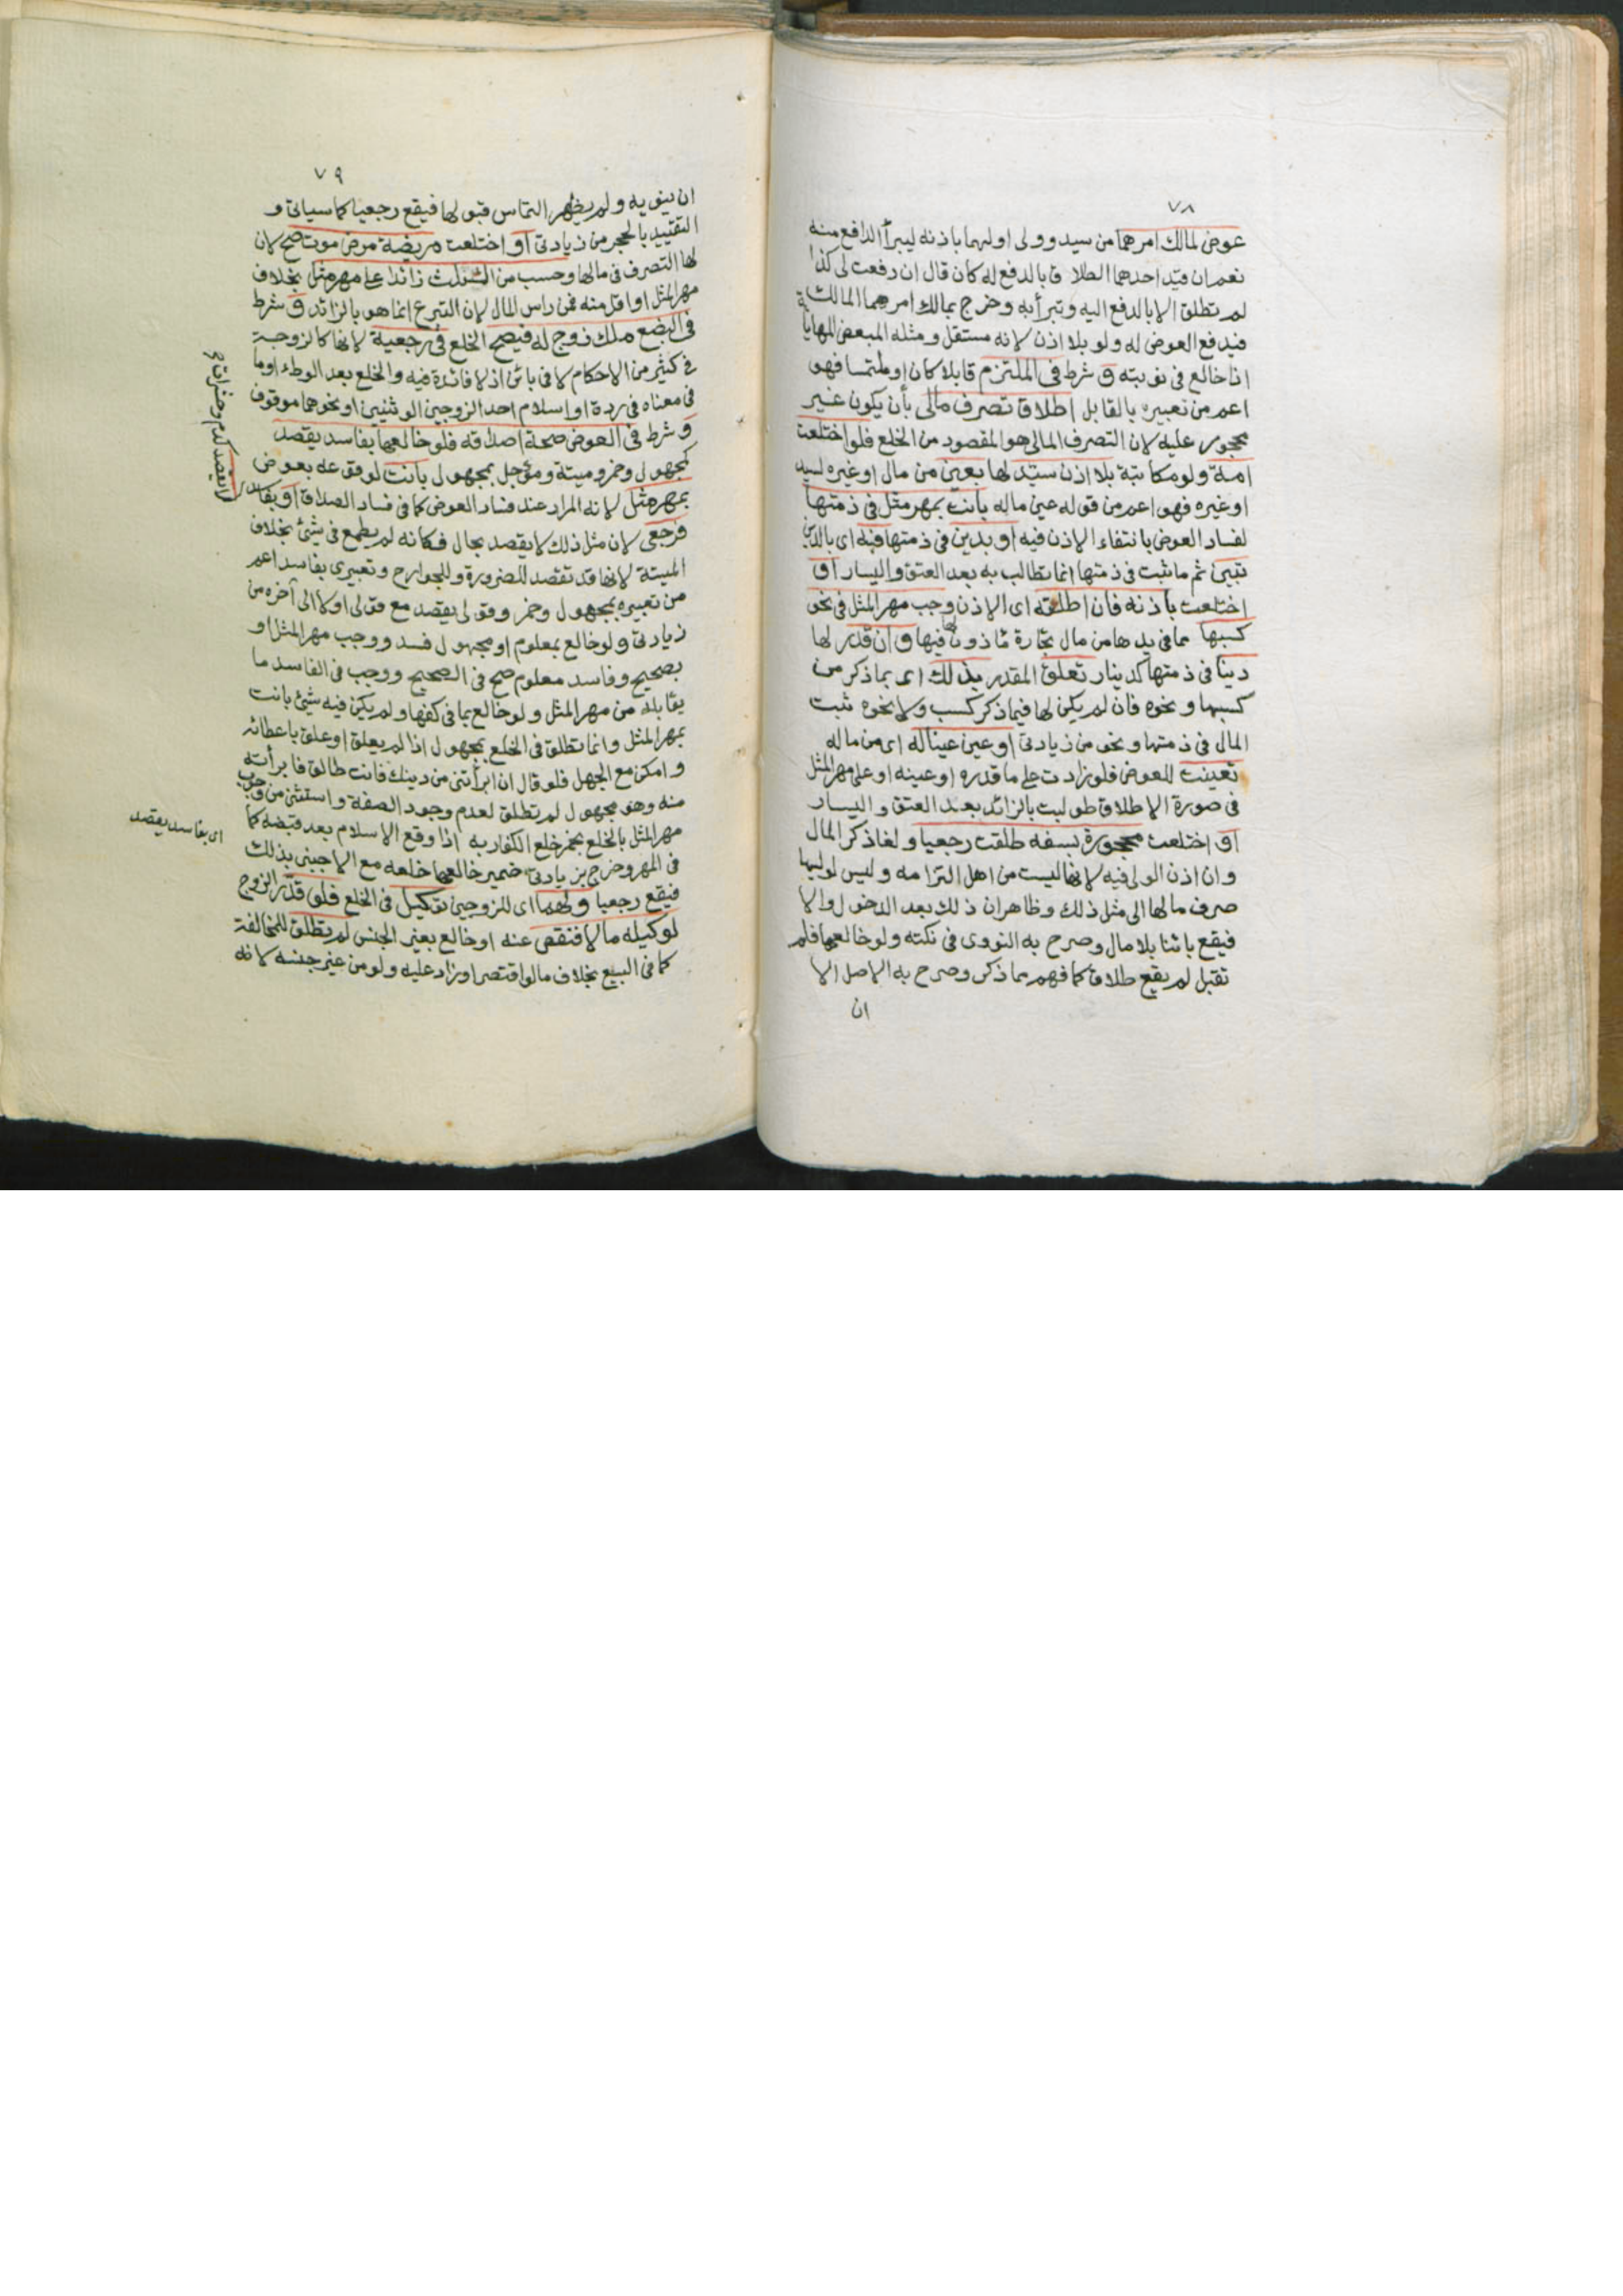 ٧٨
عوض لمالك امرهما من سيد وولى او لهما باذنه ليبرأ الدافع منه
نعم ان قيد احدهما الطلاق بالدفع له كان قال ان دفعت لى كذا
لم تطلق الا بالدفع اليه وتبرأ به وخرج بمالك امرهما المكاتب
فيدفع العوض له ولو بلا اذن لانه مستقل ومثله المبعض المهايأ
اذا خالع فى نوبته و شرط فى الملتزم قابلا كان او ملتمسا فهو
اعم من تعبيره بالقابل اطلاق تصرف مالى بأن يكون غير
محجور عليه لان التصرف المالى هو المقصود من الخلع فلو اختلعت
امة ولو مكاتبة بلا اذن سيد لها بعين من مال او غيره لسيد
او غيره فهو اعم من قوله عين ماله بانت بمهر مثل فى ذمتها
لفساد العوض بانتفاء الاذن فيه او بدين فى ذمتها فبه اى بالدين
تبين ثم ما ثبت فى ذمتها انما تطالب به بعد العتق واليسار او
اختلعت باذنه فان اطلقه اى الاذن وجب مهر المثل فى نحو
كسبها مما فى يدها من مال تجارة مأذون لها فيها وان قدر لها
دينا فى ذمتها كدينار تعلق المقدر بذلك اى بما ذكر من
كسبها ونحوه فان لم يكن لها فيما ذكر كسب ولا نحوه ثبت
المال فى ذمتها ونحو من زيادتى او عين عينا له اى من ماله
تعينت للعوض فلو زادت على ما قدره او عينه او على مهر المثل
فى صورة الاطلاق طولبت بالزائد بعد العتق واليسار
او اختلعت محجورة بسفه طلقت رجعيا ولغا ذكر المال
وان اذن الولى فيه لانها ليست من اهل التزامه وليس لوليها
صرف مالها الى مثل ذلك وظاهر ان ذلك بعد الدخول والا
فيقع بائنا بلا مال وصرح به النووى فى نكته ولو خالعها فلم
تقبل لم يقع طلاق كما فهم مما ذكر وصرح به الاصل الا
ان
٧٩
ان ينويه ولم يظهر التماس قبولها فيقع رجعيا كما سيأتى و
التقييد بالحجر من زيادتى او اختلعت مريضة مرض موت صح لان
لها التصرف فى مالها وحسب من الثلث زائد على مهر مثل بخلاف
مهر المثل او اقل منه فمن راس المال لان التبرع انما هو بالزائد و شرط
فى البضع ملك زوج له فيصح الخلع فى رجعية لانها كالزوجة
فى كثير من الاحكام لا فى بائن اذ لا فائدة فيه والخلع بعد الوطء او ما
فى معناه فى ردة او اسلام احد الزوجين الوثنيين او نحوهما موقوف
و شرط فى العوض صحة اصداقه فلو خالعها بفاسد يقصد
كمجهول وخمر وميتة ومؤجل بمجهول بانت لوقوعه بعوض
بمهر مثل لانه المراد عند فساد العوض كما فى فساد الصداق او بفاسد
لا يقصد كدم وحشرات
فرجعى لان مثل ذلك لا يقصد بحال فكانه لم يطمع فى شئ بخلاف
الميتة لانها قد تقصد للضرورة وللجوارح وتعبيرى بفاسد اعم
من تعبيره بمجهول وخمر وقولى يقصد مع قولى او لا الى آخره من
زيادتى ولو خالع بمعلوم ومجهول فسد ووجب مهر المثل او
بصحيح وفاسد معلوم صح فى الصحيح ووجب فى الفاسد ما
يقابله من مهر المثل ولو خالع بما فى كفها ولم يكن فيه شئ بانت
بمهر المثل وانما تطلق فى الخلع بمجهول اذا لم يعلق او علق باعطائه
وامكن مع الجهل فلو قال ان ابرأتنى من دينك فانت طالق فابرأته
منه وهو مجهول لم تطلق لعدم وجود الصفة واستثنى من وجوب
مهر المثل بالخلع بخمر خلع الكفار به اذا وقع الاسلام بعد قبضه كما
فى المهر وخرج بزيادتى ضمير خالعها خلعه مع الاجنبى بذلك
اى بفاسد يقصد
فيقع رجعيا ولهما اى للزوجين توكيل فى الخلع فلو قدر الزوج
لوكيله مالا فنقص عنه او خالع بغير الجنس لم تطلق للمخالفة
كما فى البيع بخلاف ما لو اقتصر او زاد عليه ولو من غير جنسه لانه